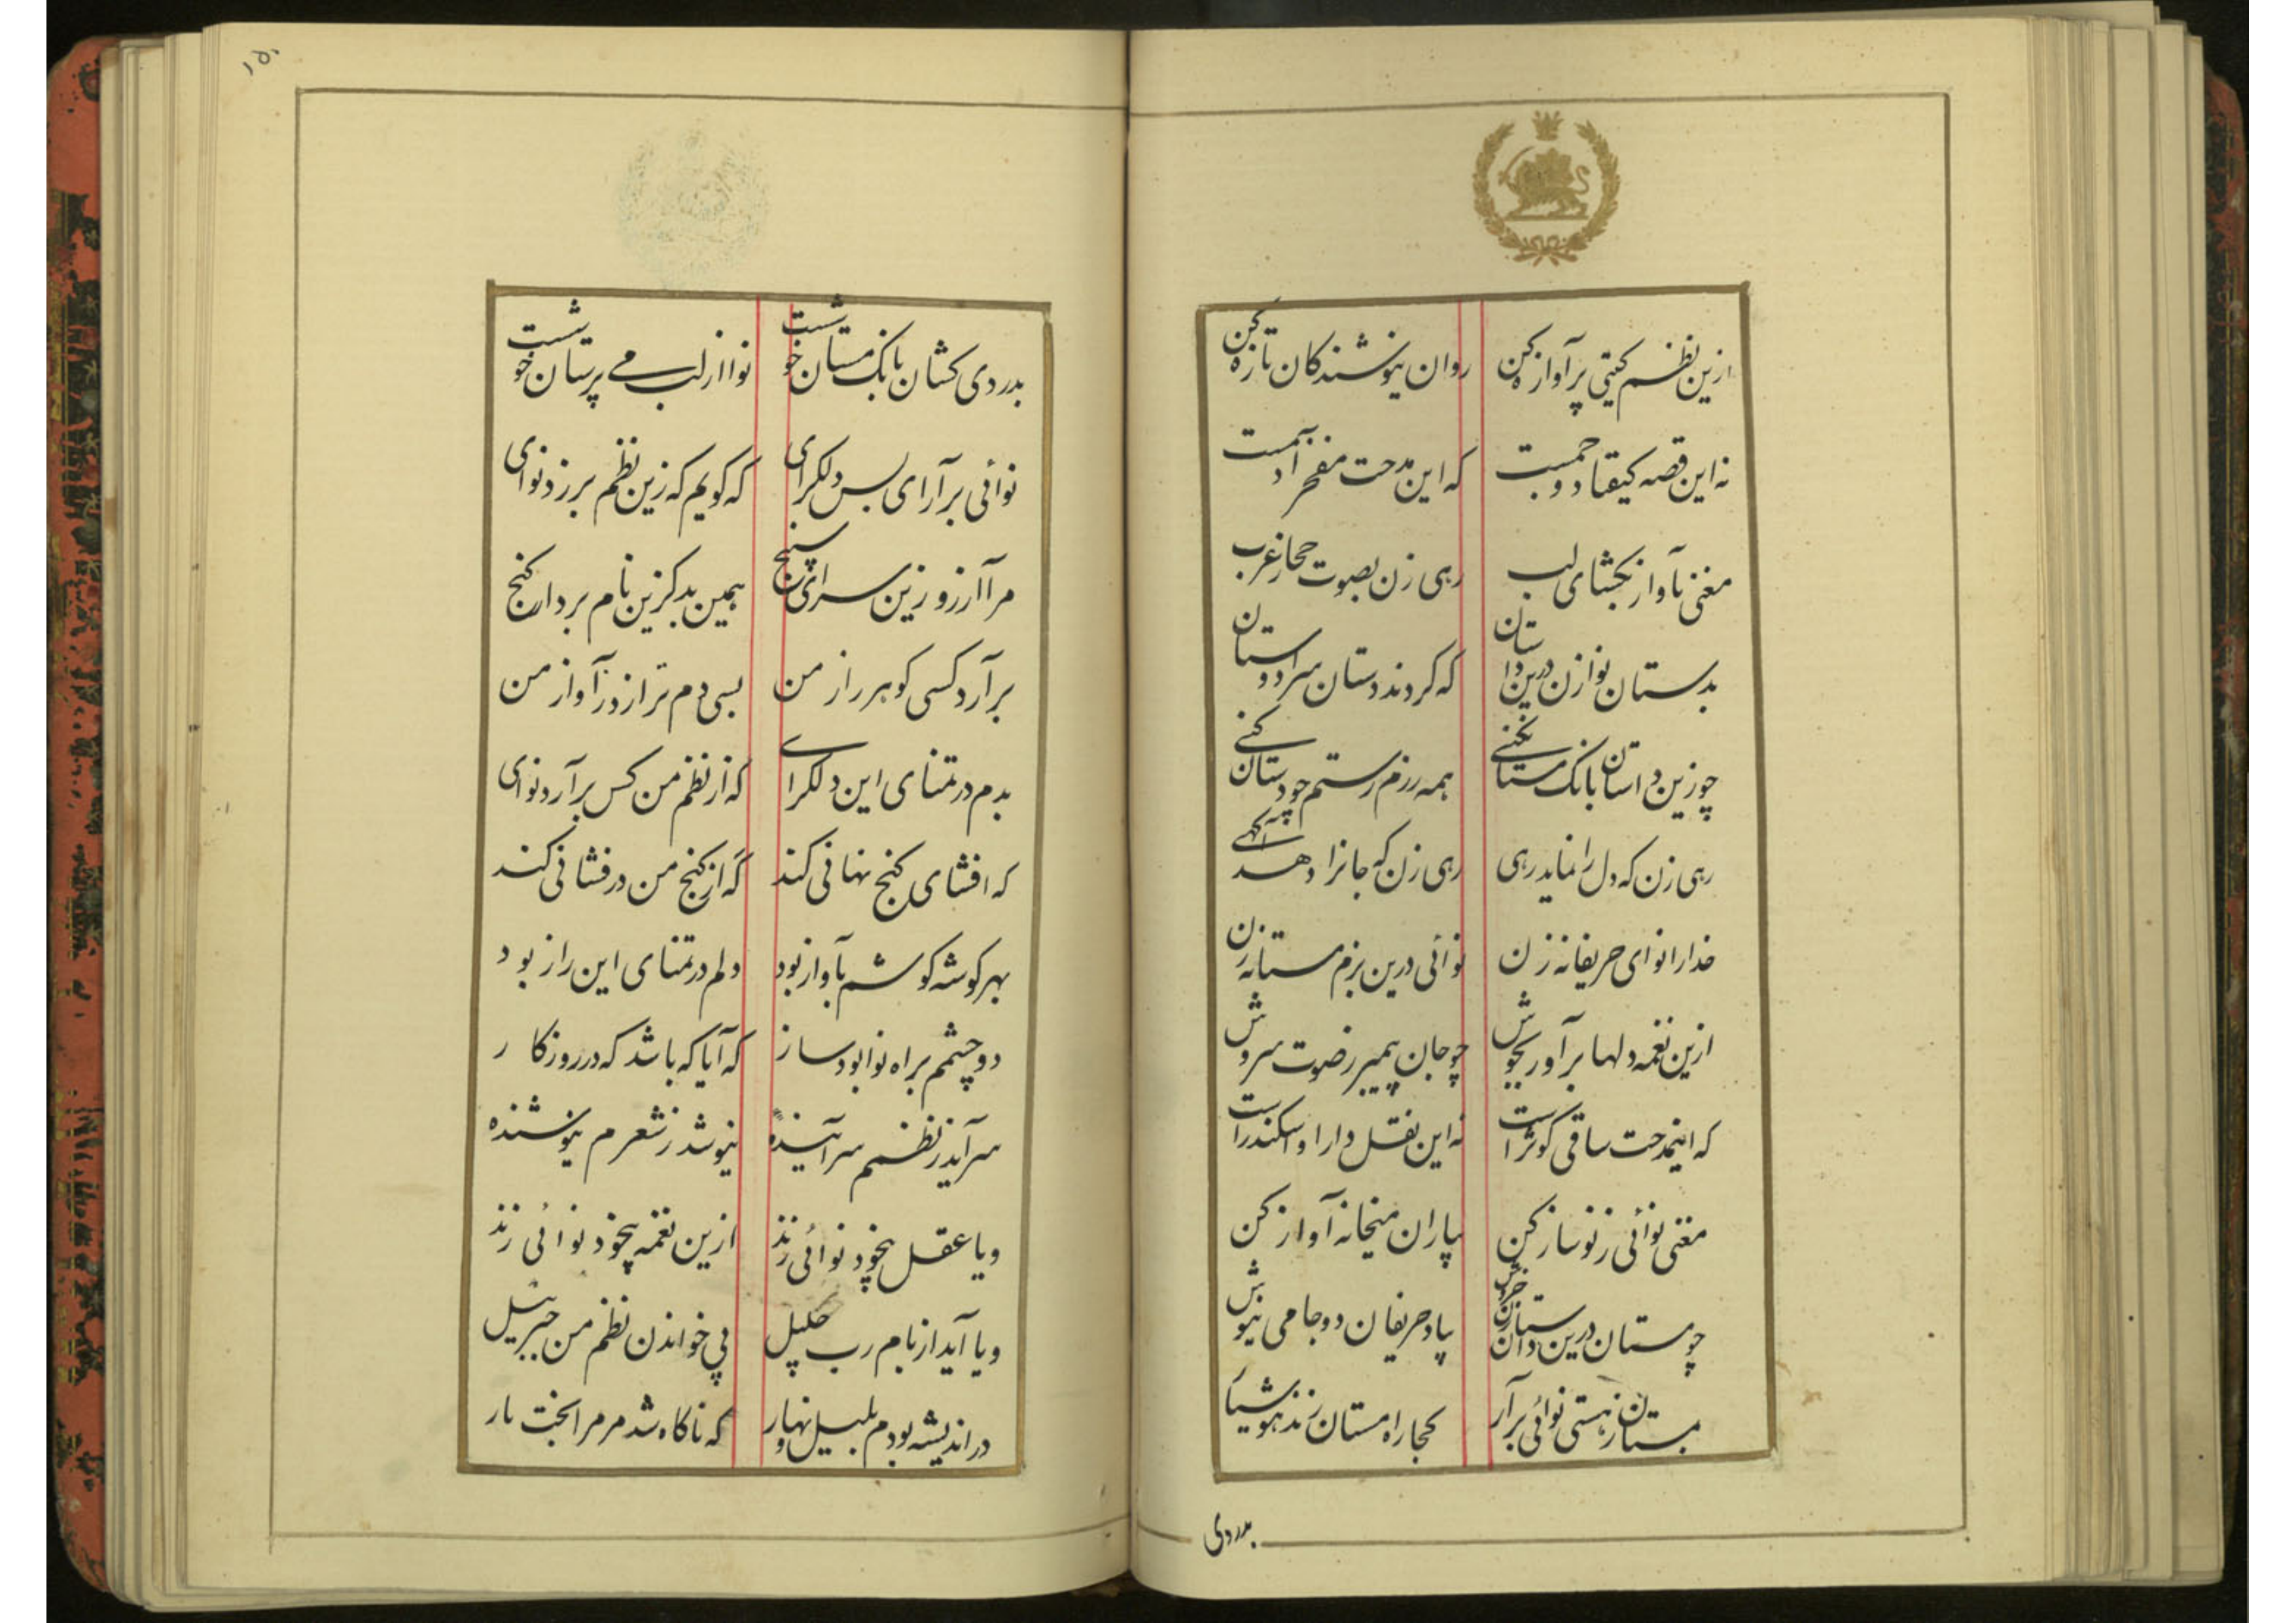 ازین نظم کیتی پرآوازه کن روان نیوشندکان تازه کن
نه این قصه کیقباد و جمست که این مدحت مفخر آدمست
مغنی بآواز بکشای لب رهی زن بصوت حجاز عرب
بدستان نوا زن درین داستان که کردند دستان سرا دوستان
چو زین داستان بانک مستان کنی همه رزم رستم چو دستان کنی
رهی زن که دل را نماید رهی رهی زن که جانرا دهد آکهی
خدارا نوای حریفانه زن نوائی درین بزم مستانه زن
ازین نغمه دلها برآور بجوش چو جان پیمبر ز صوت سروش
که اینمدحت ساقی کوثر است نه این نقل دارا و اسکندر است
مغنی نوائی ز نو ساز کن بیاران میخانه آواز کن
چو مستان درین داستان زن خروش بیاد حریفان دو جامی بنوش
بمستان ز هستی نوائی برآر کجا راه مستان زند هوشیار
بدردی
۱۵۰
بدردی کشان بانک مستان خوشست نوا از لب می پرستان خوشست
نوائی برآرای بس دلکرای که کویم که زین نظم برزد نوای
مرا آرزو زین سرای سپنج همین بد کزین نام بردار کنج
برآرد کسی کوهر راز من بسی دم‌تر از ورز آواز من
بدم در تمنای این دلکرای که از نظم من کس برآرد نوای
که افشای کنج نهانی کند که از کنج من درفشانی کند
بهر کوشه کوشم بآواز بود دلم در تمنای این راز بود
دو چشمم براه نوا بود ساز که آیا که باشد که در روزکار
سرآید ز نظمم سرآینده نیوشد ز شعرم نیوشنده
و یا عقل بیخود نوائی زند ازین نغمه بیخود نوائی زند
و یا آید از بام رب جلیل پی خواندن نظم من جبرئیل
در اندیشه بودم بلیل و نهار که ناکاه شد مر مرا بخت یار